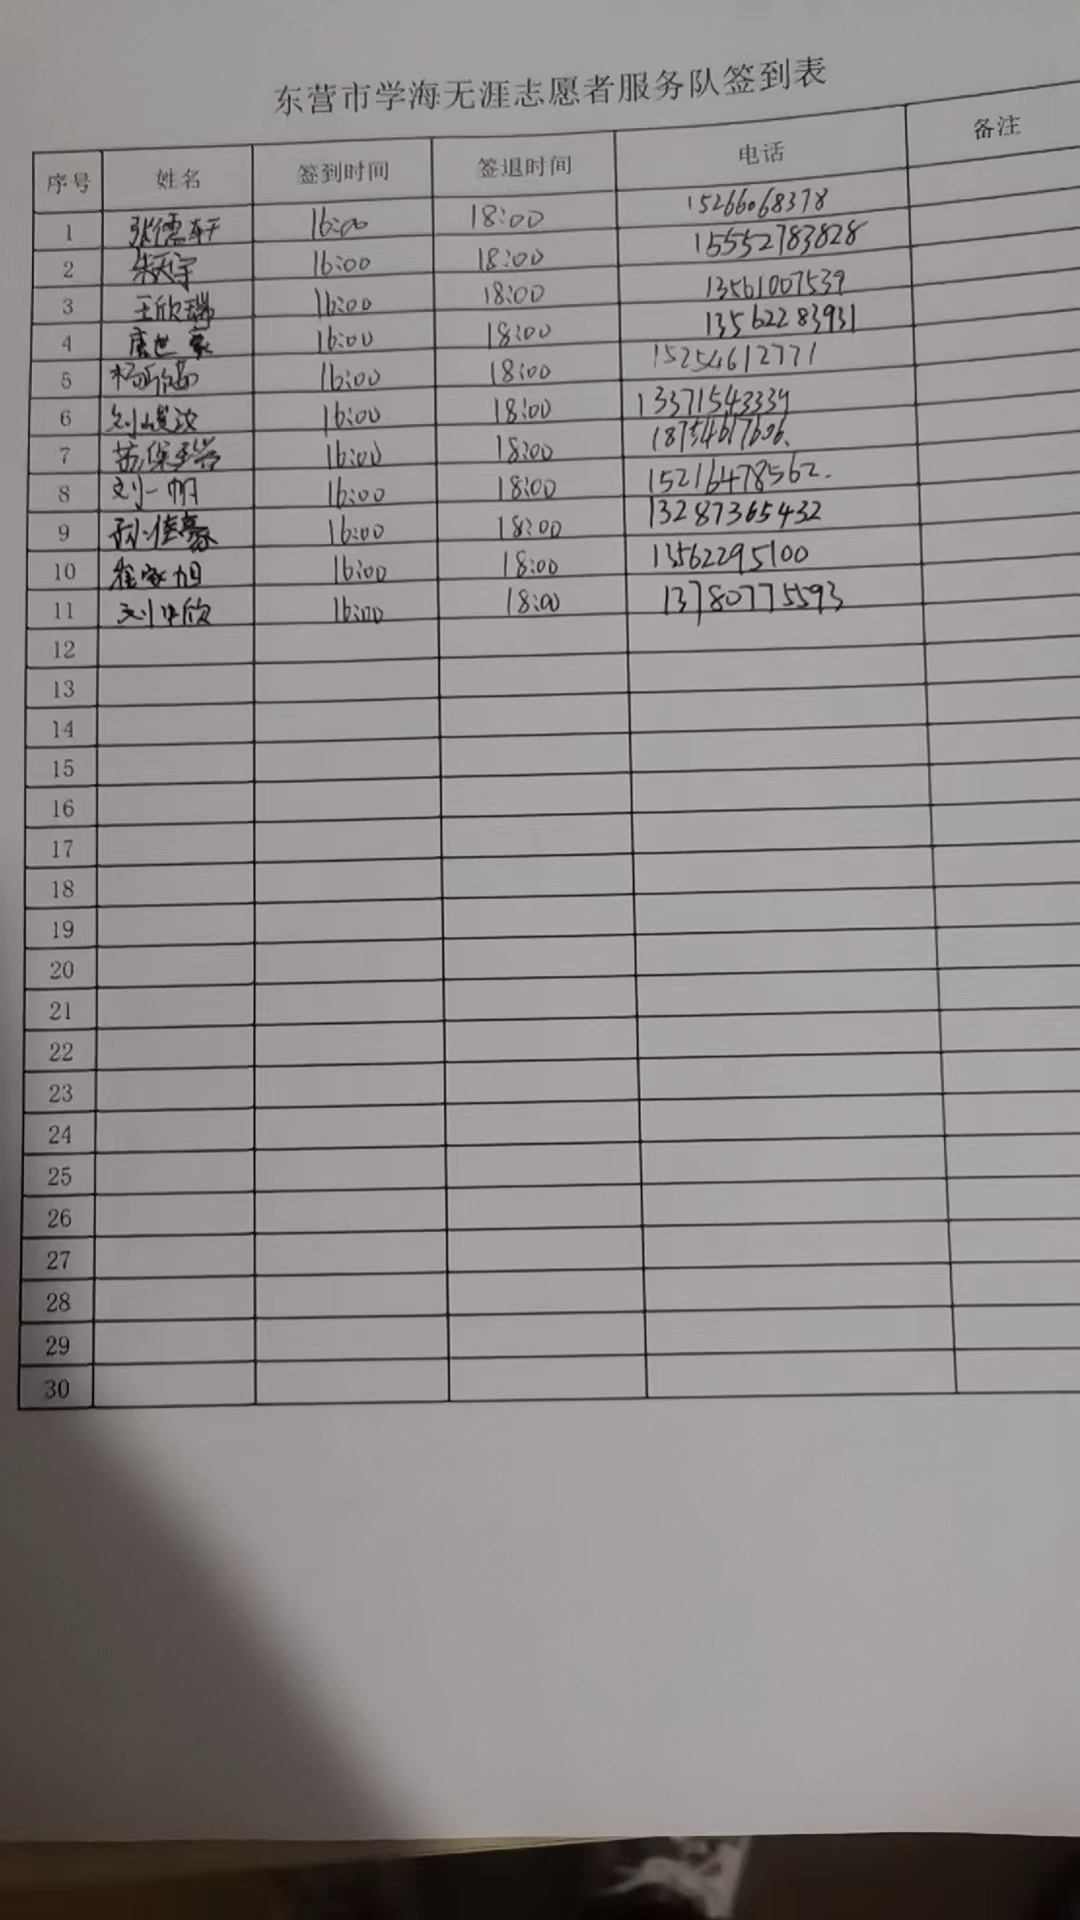 东营市学海无涯志愿者服务队签到表
序号 姓名 签到时间 签退时间 电话 备注
1 张儒轩 16:00 18:00 15266068378
2 朱天宇 16:00 18:00 15552783828
3 王欣瑞 16:00 18:00 13561007539
4 唐世豪 16:00 18:00 13562283931
5 16:00 18:00 15254612771
6 刘 16:00 18:00 13371543339
7 16:00 18:00 18754617606.
8 刘一帆 16:00 18:00 15216478562.
9 孙佳豪 16:00 18:00 13287365432
10 家旭 16:00 18:00 13562295100
11 刘中欣 16:00 18:00 13780775593
12
13
14
15
16
17
18
19
20
21
22
23
24
25
26
27
28
29
30